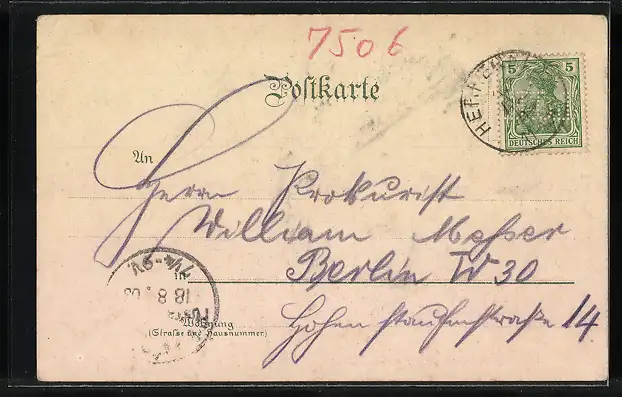 7506
Postkarte
5 5
DEUTSCHES REICH
An
Herrn Prokurist
William Messer
in Berlin W 30
Wohnung
(Straße und Hausnummer)
Hohenstaufenstraße 14.
7½-9V.
18 8